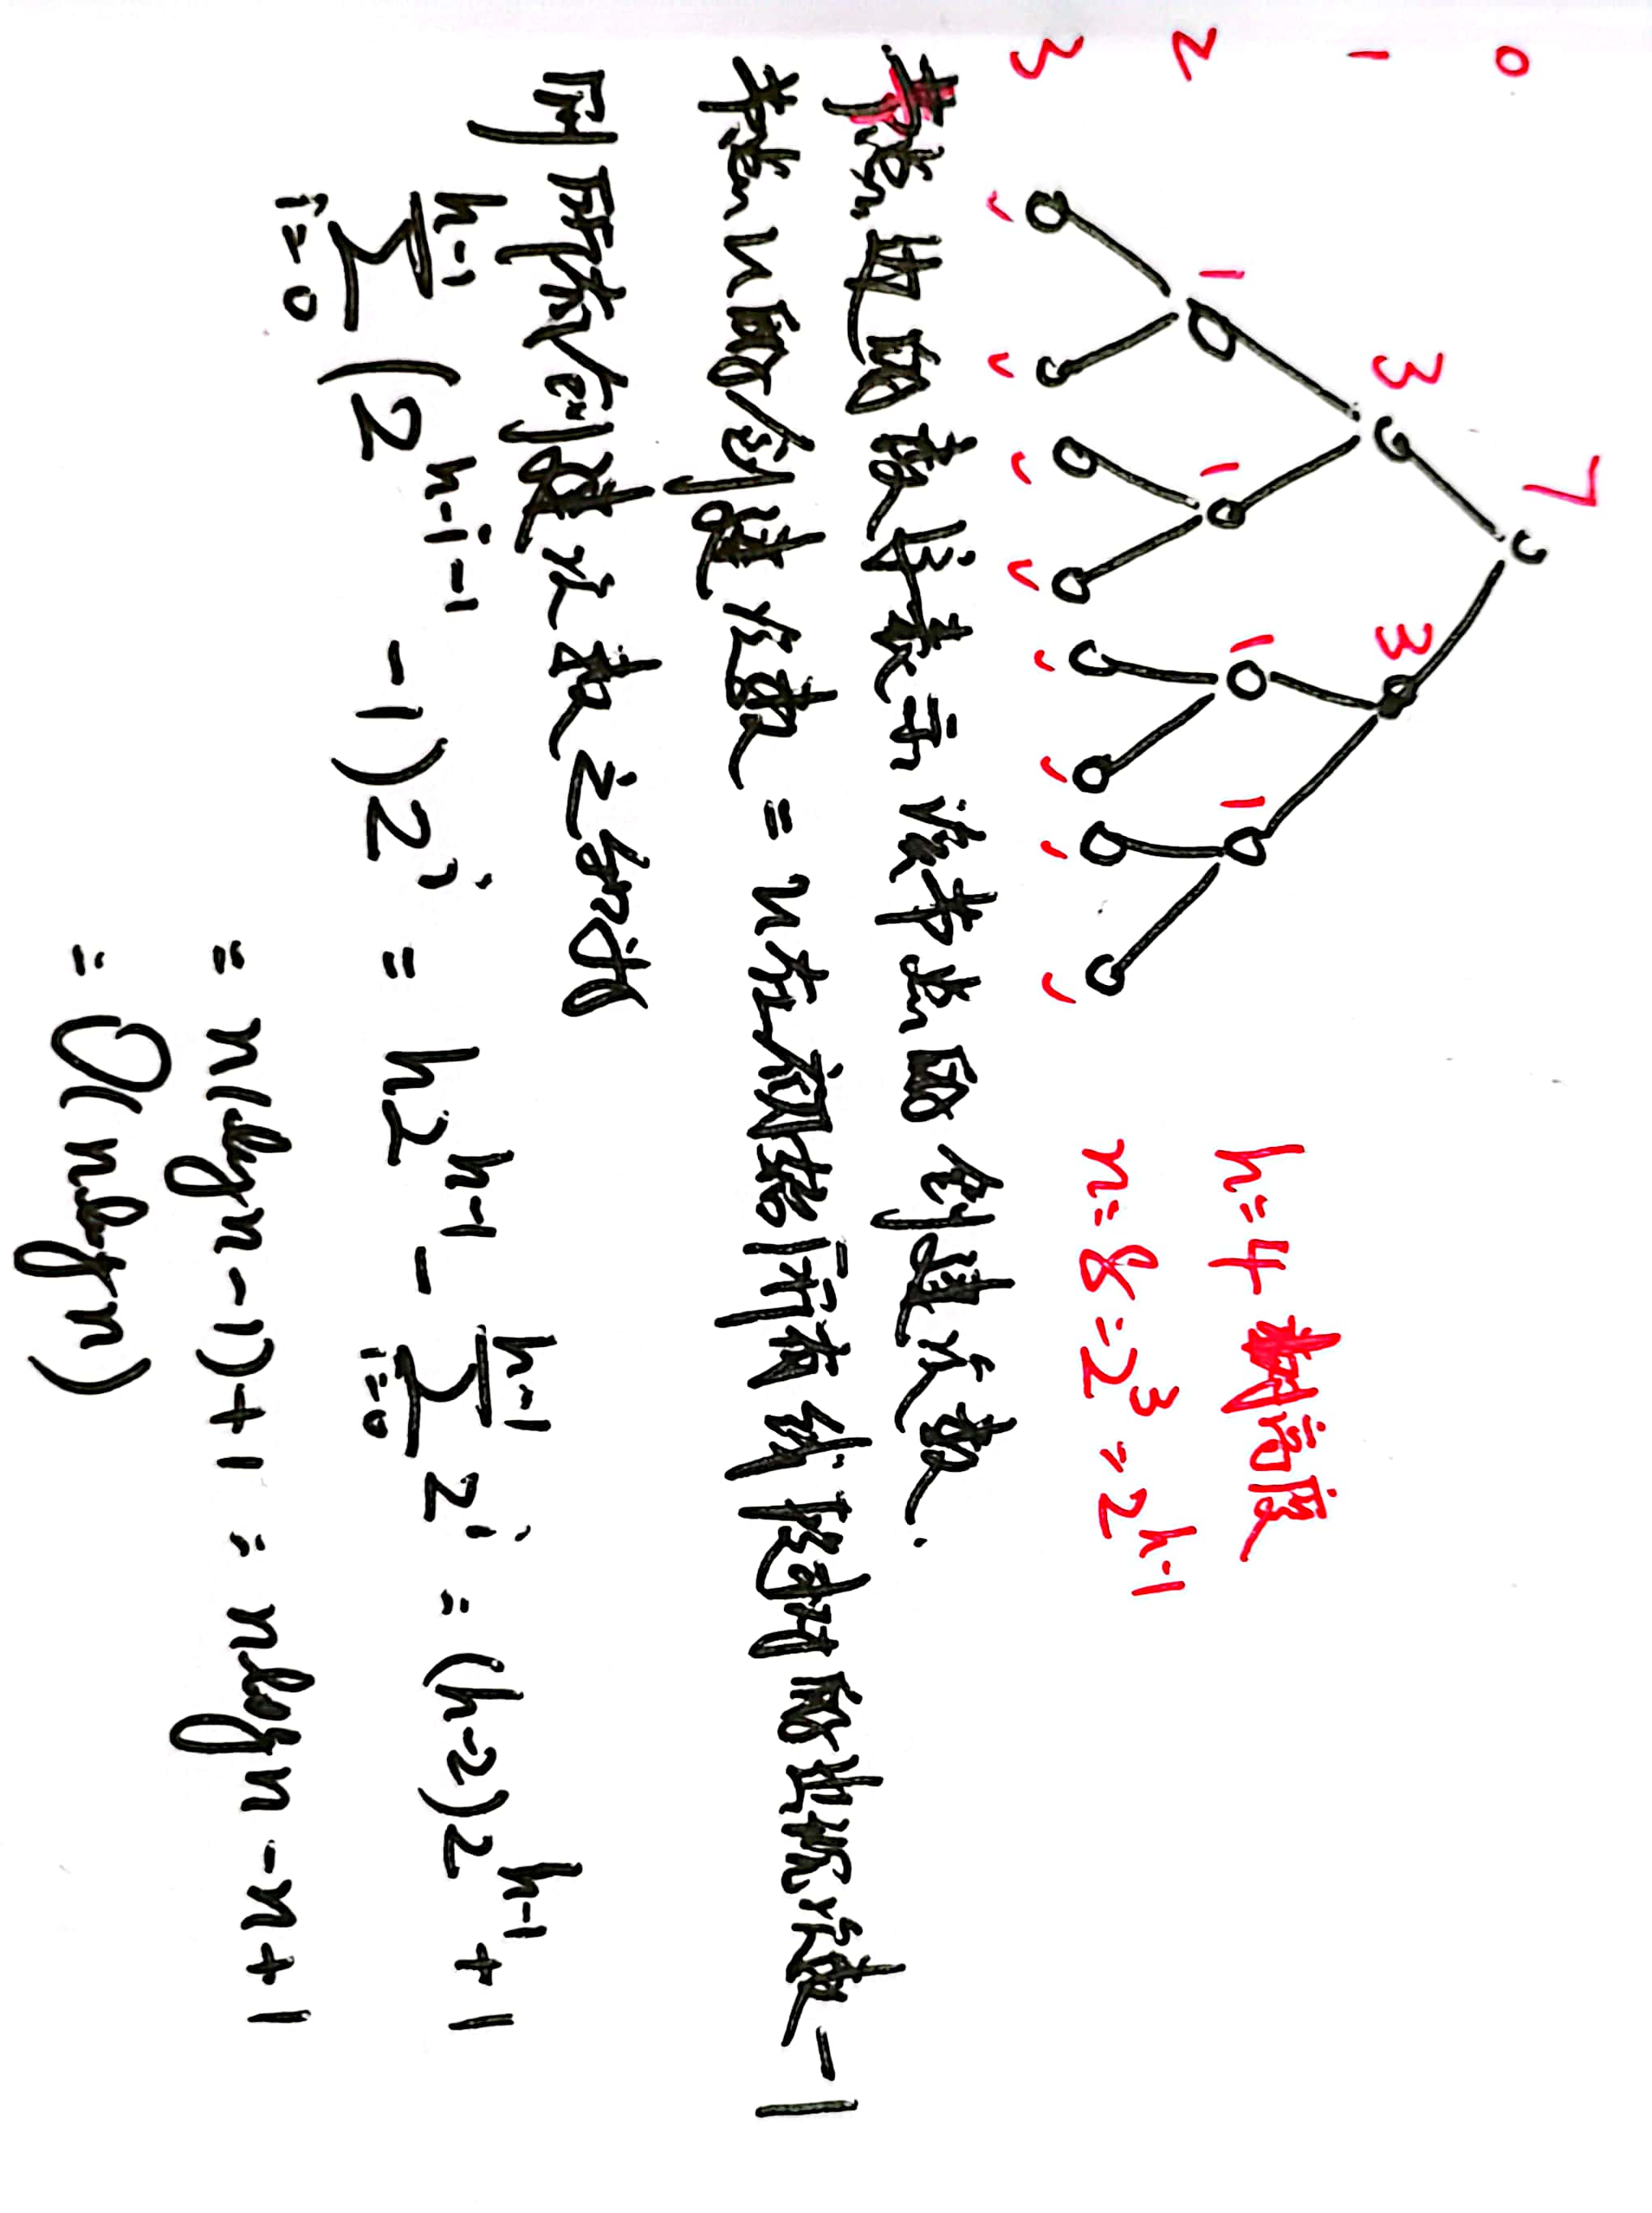 7
0
3 3
1
1 1 1 1
2
3
h=4 树高度
n=8=2^3=2^{h-1}
节点边的数字表示该节点的创建次数.
节点u的创建次数=u在初始所有线段树的出现次数-1
则所有创建次数之和为
\sum_{i=0}^{h-1}(2^{h-i-1}-1)2^i=h2^{h-1}-\sum_{i=0}^{h-1}2^i=(h-2)2^{h-1}+1
=n(logn-1)+1=nlogn-n+1
=O(nlogn)